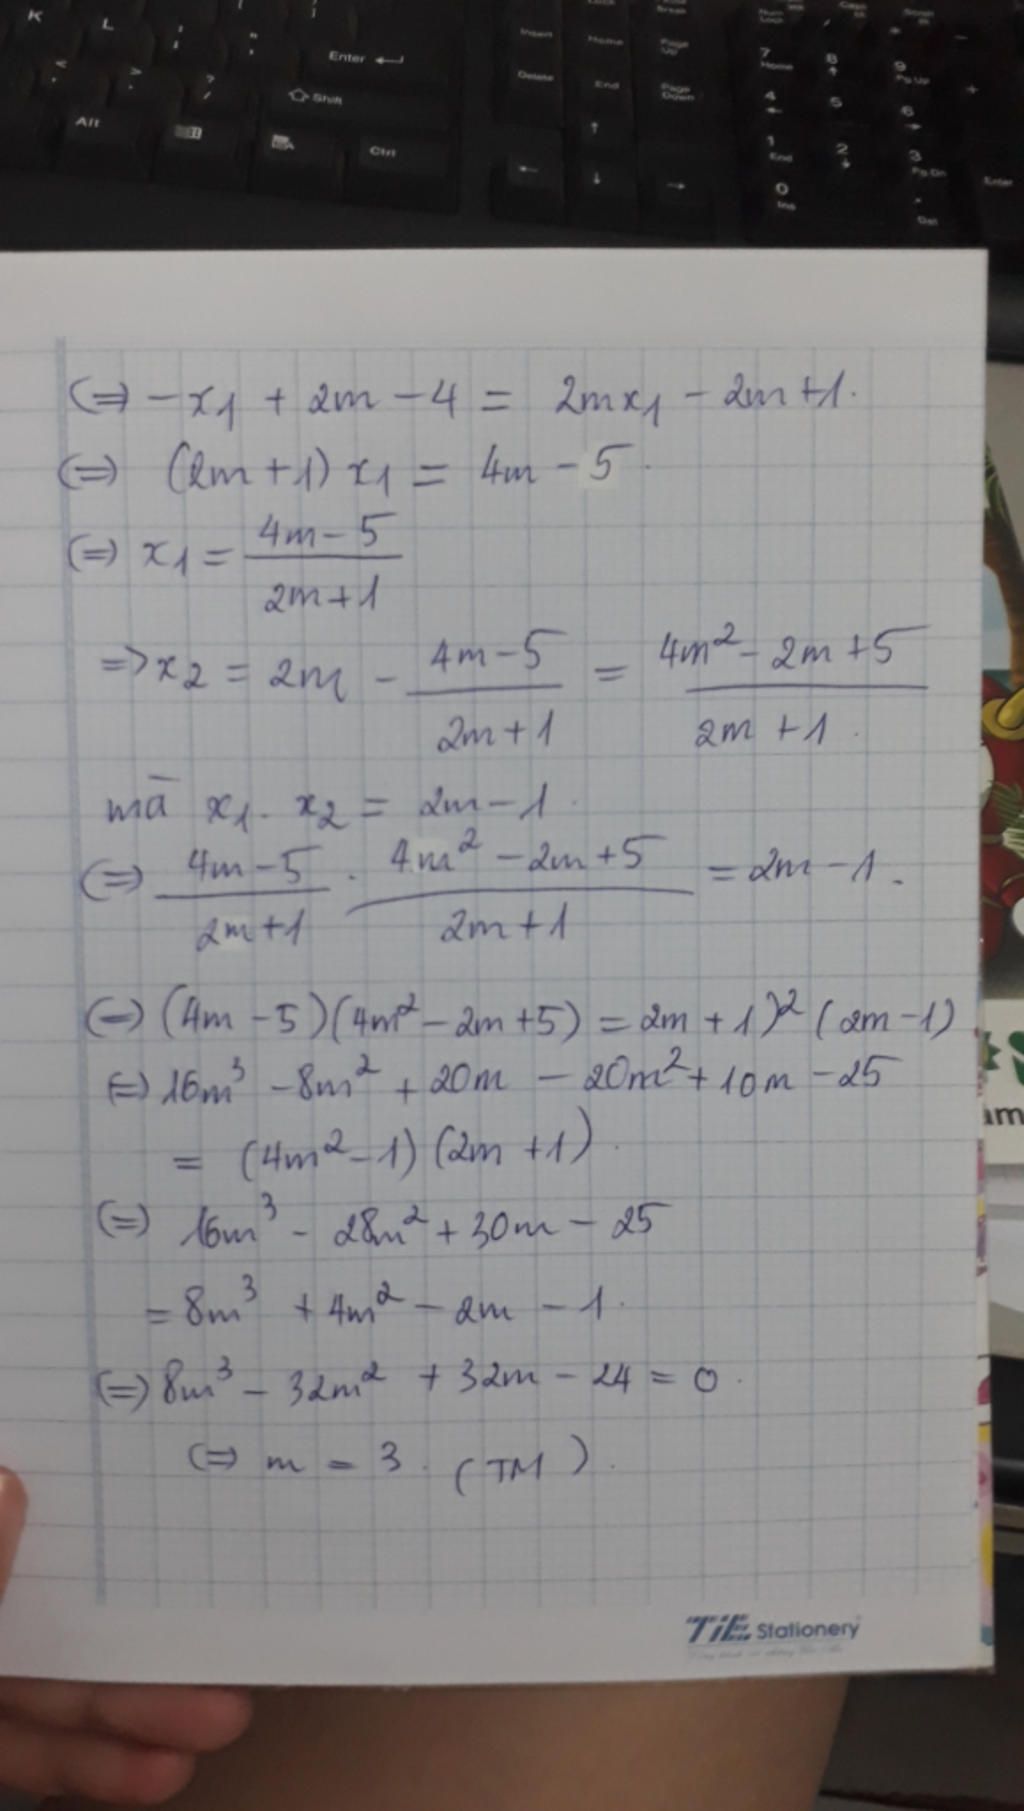 K
L
Enter
Shift
Alt
Ctrl
Insert
Home
Page Up
Delete
End
Page Down
7 Home
8
9 Pg Up
4
5
6
1 End
2
3 Pg Dn
Enter
0 Ins
. Del
(=) -x1 + 2m - 4 = 2mx1 - 2m + 1.
(=) (2m + 1) x1 = 4m - 5.
(=) x1 = (4m - 5)/(2m + 1)
=> x2 = 2m - (4m - 5)/(2m + 1) = (4m² - 2m + 5)/(2m + 1).
mà x1. x2 = 2m - 1.
(=) (4m - 5)/(2m + 1) . (4m² - 2m + 5)/(2m + 1) = 2m - 1.
(=) (4m - 5)(4m² - 2m + 5) = 2m + 1)² (2m - 1)
(=) 16m³ - 8m² + 20m - 20m² + 10m - 25
= (4m² - 1)(2m + 1).
(=) 16m³ - 28m² + 30m - 25
= 8m³ + 4m² - 2m - 1.
(=) 8m³ - 32m² + 32m - 24 = 0.
(=) m = 3. (TM).
TiE Stationery